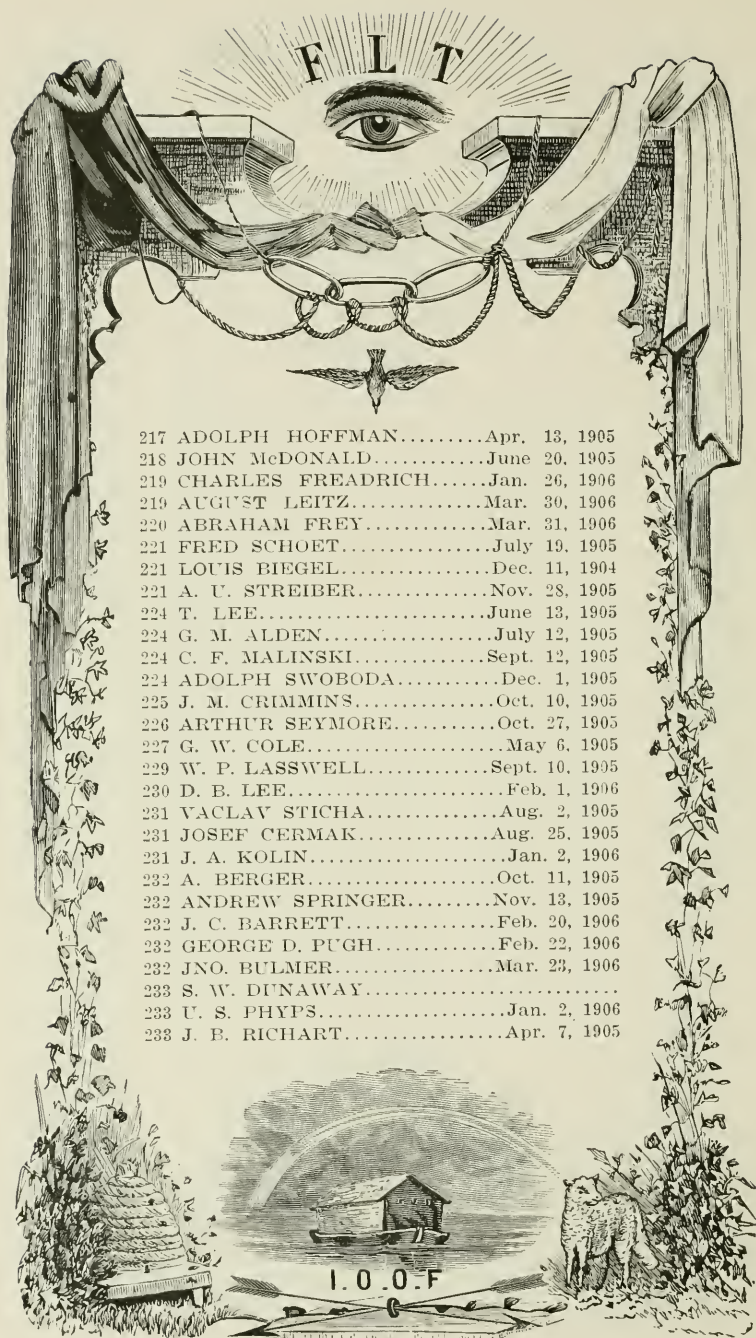 F L T
217 ADOLPH HOFFMAN.........Apr. 13, 1905
218 JOHN McDONALD............June 20, 1905
219 CHARLES FREADRICH......Jan. 26, 1906
219 AUGUST LEITZ..............Mar. 30, 1906
220 ABRAHAM FREY.............Mar. 31, 1906
221 FRED SCHOET................July 19, 1905
221 LOUIS BIEGEL...............Dec. 11, 1904
221 A. U. STREIBER..............Nov. 28, 1905
224 T. LEE........................June 13, 1905
224 G. M. ALDEN..................July 12, 1905
224 C. F. MALINSKI..............Sept. 12, 1905
224 ADOLPH SWOBODA...........Dec. 1, 1905
225 J. M. CRIMMINS...............Oct. 10, 1905
226 ARTHUR SEYMORE...........Oct. 27, 1905
227 G. W. COLE.....................May 6, 1905
229 W. P. LASSWELL.............Sept. 10, 1905
230 D. B. LEE.......................Feb. 1, 1906
231 VACLAV STICHA..............Aug. 2, 1905
231 JOSEF CERMAK..............Aug. 25, 1905
231 J. A. KOLIN....................Jan. 2, 1906
232 A. BERGER....................Oct. 11, 1905
232 ANDREW SPRINGER.........Nov. 13, 1905
232 J. C. BARRETT................Feb. 20, 1906
232 GEORGE D. PUGH............Feb. 22, 1906
232 JNO. BULMER.................Mar. 23, 1906
233 S. W. DUNAWAY..............................
233 U. S. PHYPS....................Jan. 2, 1906
233 J. B. RICHART.................Apr. 7, 1905
I.O.O.F